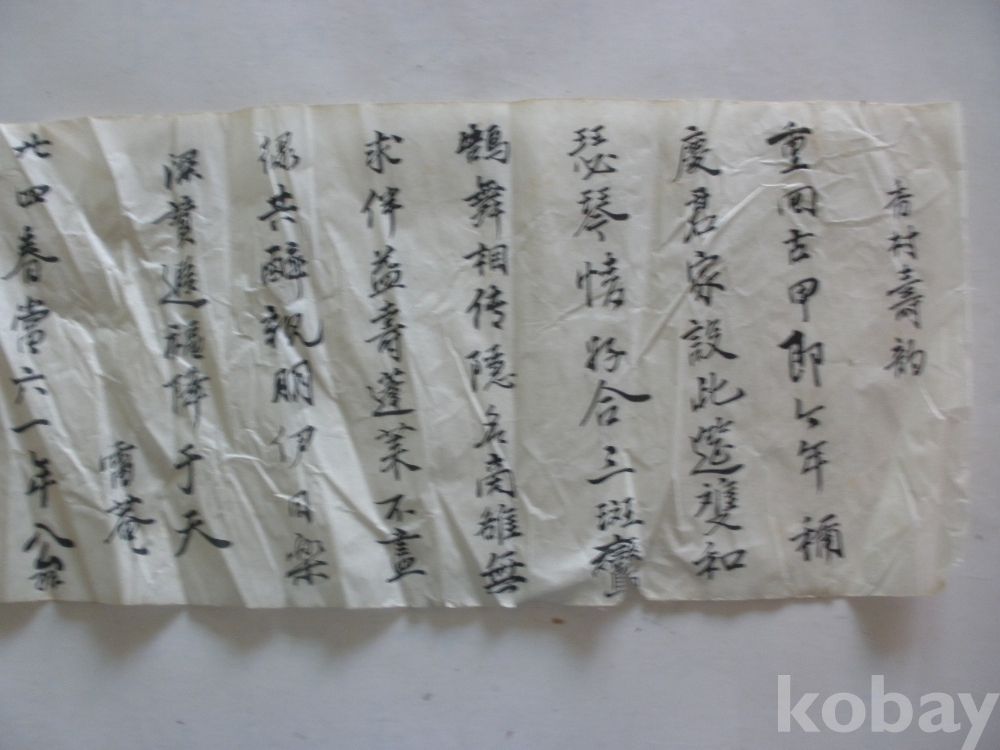 杏村壽韵
重回古甲即今年稱
慶君家設此筵雙和
瑟琴情好合三斑
鶴舞相传隱名商雖無
求伴益壽蓬萊不盡
緣共醉親朋伊日樂
深贊進福降于天
雷菴
廿四春當六一年八
kobay